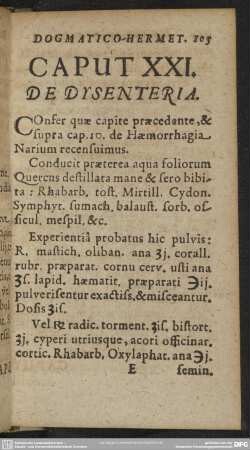 DOGMATICO-HERMET. 105
CAPUT XXI.
DE DYSENTERIA.
COnfer quæ capite præcedente, &
supra cap. 10. de Hæmorrhagia
Narium recensuimus.
Conducit præterea aqua foliorum
Quercus destillata mane & sero bibi-
ta: Rhabarb. tost. Mirtill. Cydon.
Symphyt. sumach, balaust. sorb. os-
sicul. mespil. &c.
Experientiâ probatus hic pulvis:
R. mastich. oliban. ana ʒj. corall.
rubr. præparat. cornu cerv. usti ana
ʒs. lapid. hæmatit. præparati ℈ij.
pulverisentur exactiss, & misceantur.
Dosis ʒis.
Vel ℞ radic. torment. ʒis. bistort.
ʒj. cyperi utriusque, acori officinar.
cortic. Rhabarb, Oxylaphat. ana ℈j.
E semin.